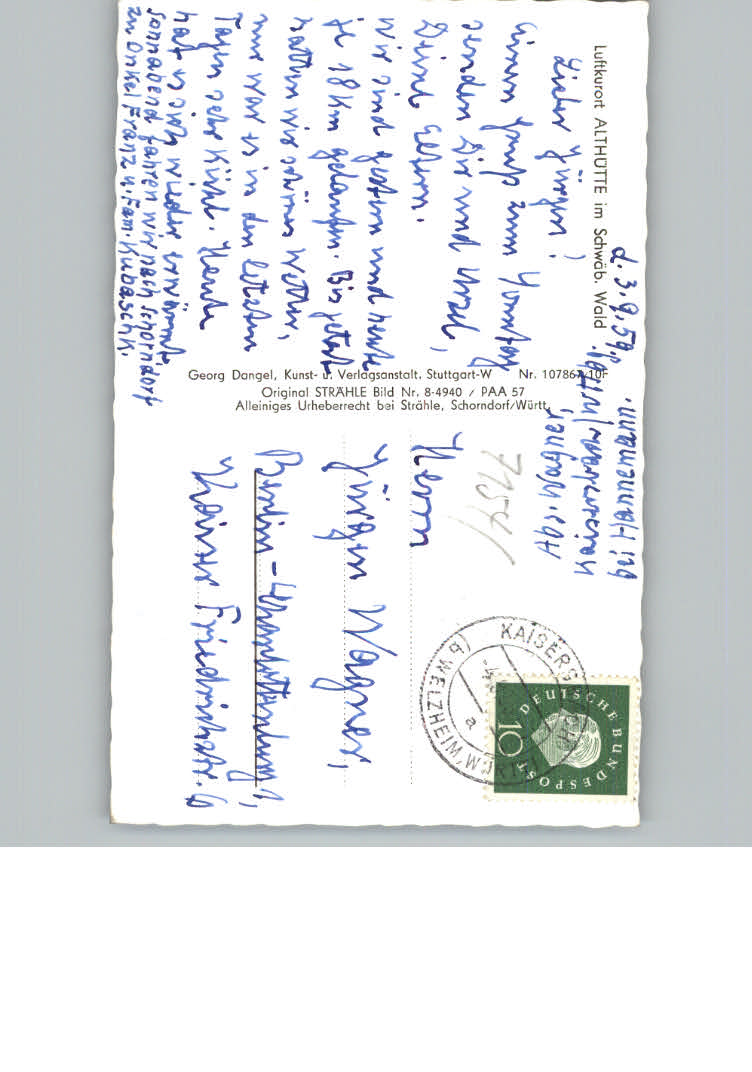 Luftkurort ALTHÜTTE im Schwäb. Wald
d. 3.9.59.
Lieber Jürgen!
Einen Gruß zum Sonntag
senden Dir und Ursel,
Deine Eltern.
Wir sind gestern und heute
je 18 Km gelaufen. Bis jetzt
hatten wir schönes Wetter,
nur war es in den letzten
Tagen sehr kühl. Heute
hat es sich wieder erwärmt.
Sonnabend fahren wir nach Schorndorf
zu Onkel Franz u. Fam. Kubaschk.
Georg Dangel, Kunst- u. Verlagsanstalt, Stuttgart-W Nr. 107867/10F
Original STRÄHLE Bild Nr. 8-4940 / PAA 57
Alleiniges Urheberrecht bei Strähle, Schorndorf/Württ.
Abs. Wagner,
bei Hannemann.
7154
KAISERSBACH
a
(WELZHEIM, WÜRTT)
DEUTSCHE BUNDESPOST
10
Herrn
Jürgen Wagner,
Berlin-Charlottenburg 1,
Kaiser Friedrichstr. 6